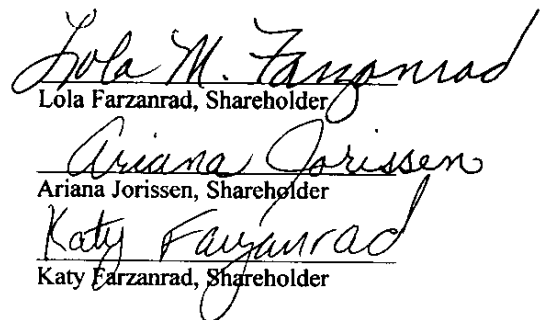 Lola M. Farzanrad
Lola Farzanrad, Shareholder
Ariana Jorissen
Ariana Jorissen, Shareholder
Katy Farzanrad
Katy Farzanrad, Shareholder